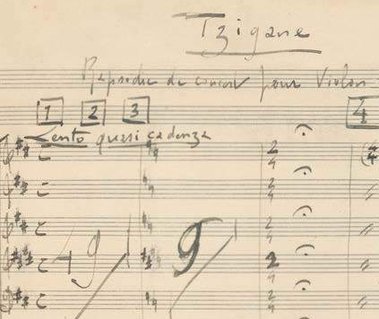 Tzigane
Rapsodie de concert pour Violon
1 2 3 4
Lento quasi cadenza
49 9 2